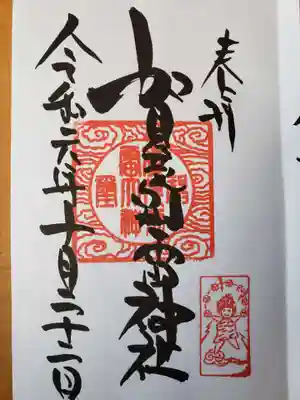 奉拝
賀茂別雷神社
令和六年十一月二十二日